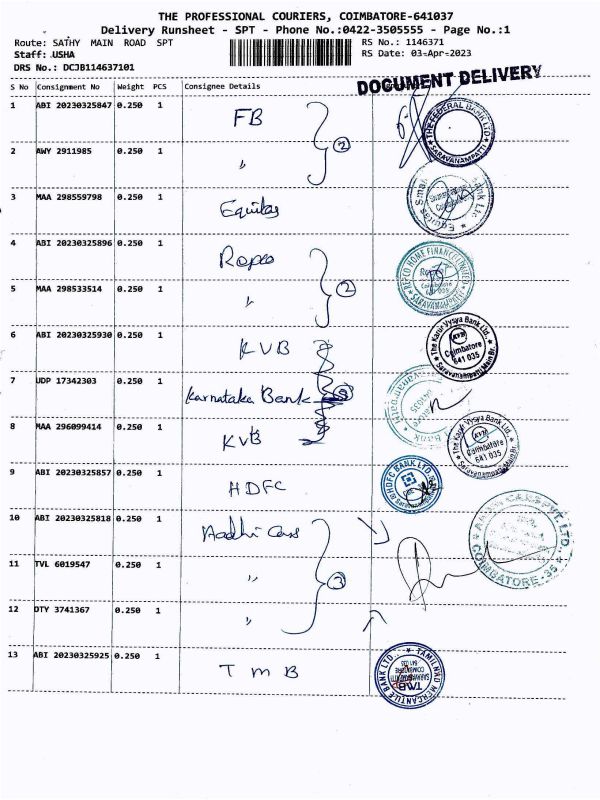 THE PROFESSIONAL COURIERS, COIMBATORE-641037
Delivery Runsheet - SPT - Phone No.:0422-3505555 - Page No.:1
Route: SATHY MAIN ROAD SPT
RS No.: 1146371
Staff: USHA
RS Date: 03-Apr-2023
DRS No.: DCJB114637101
DOCUMENT DELIVERY
S No Consignment No Weight PCS Consignee Details
1 ABI 20230325847 0.250 1 FB
2
THE FEDERAL BANK LTD. SARAVANAMPATTI
2 AWY 2911985 0.250 1 "
3 MAA 298559798 0.250 1 Equitas
4 ABI 20230325896 0.250 1 Repco
2
REPCO HOME FINANCE LIMITED SARAVANAMPATTI
5 MAA 298533514 0.250 1 "
6 ABI 20230325930 0.250 1 KVB
The Karur Vysya Bank Ltd., Saravanampatti Main Br. KVB Coimbatore 641 035
7 UDP 17342303 0.250 1 Karnataka Bank
8 MAA 296099414 0.250 1 KVB
The Karur Vysya Bank Ltd., KVB Coimbatore 641 035
9 ABI 20230325857 0.250 1 HDFC
HDFC BANK LTD.
10 ABI 20230325818 0.250 1 Aadhi Cars
CARS PVT. LTD. COIMBATORE-35
11 TVL 6019547 0.250 1 "
3
12 DTY 3741367 0.250 1 "
13 ABI 20230325925 0.250 1 TMB
TAMILNAD MERCANTILE BANK LTD. TMB